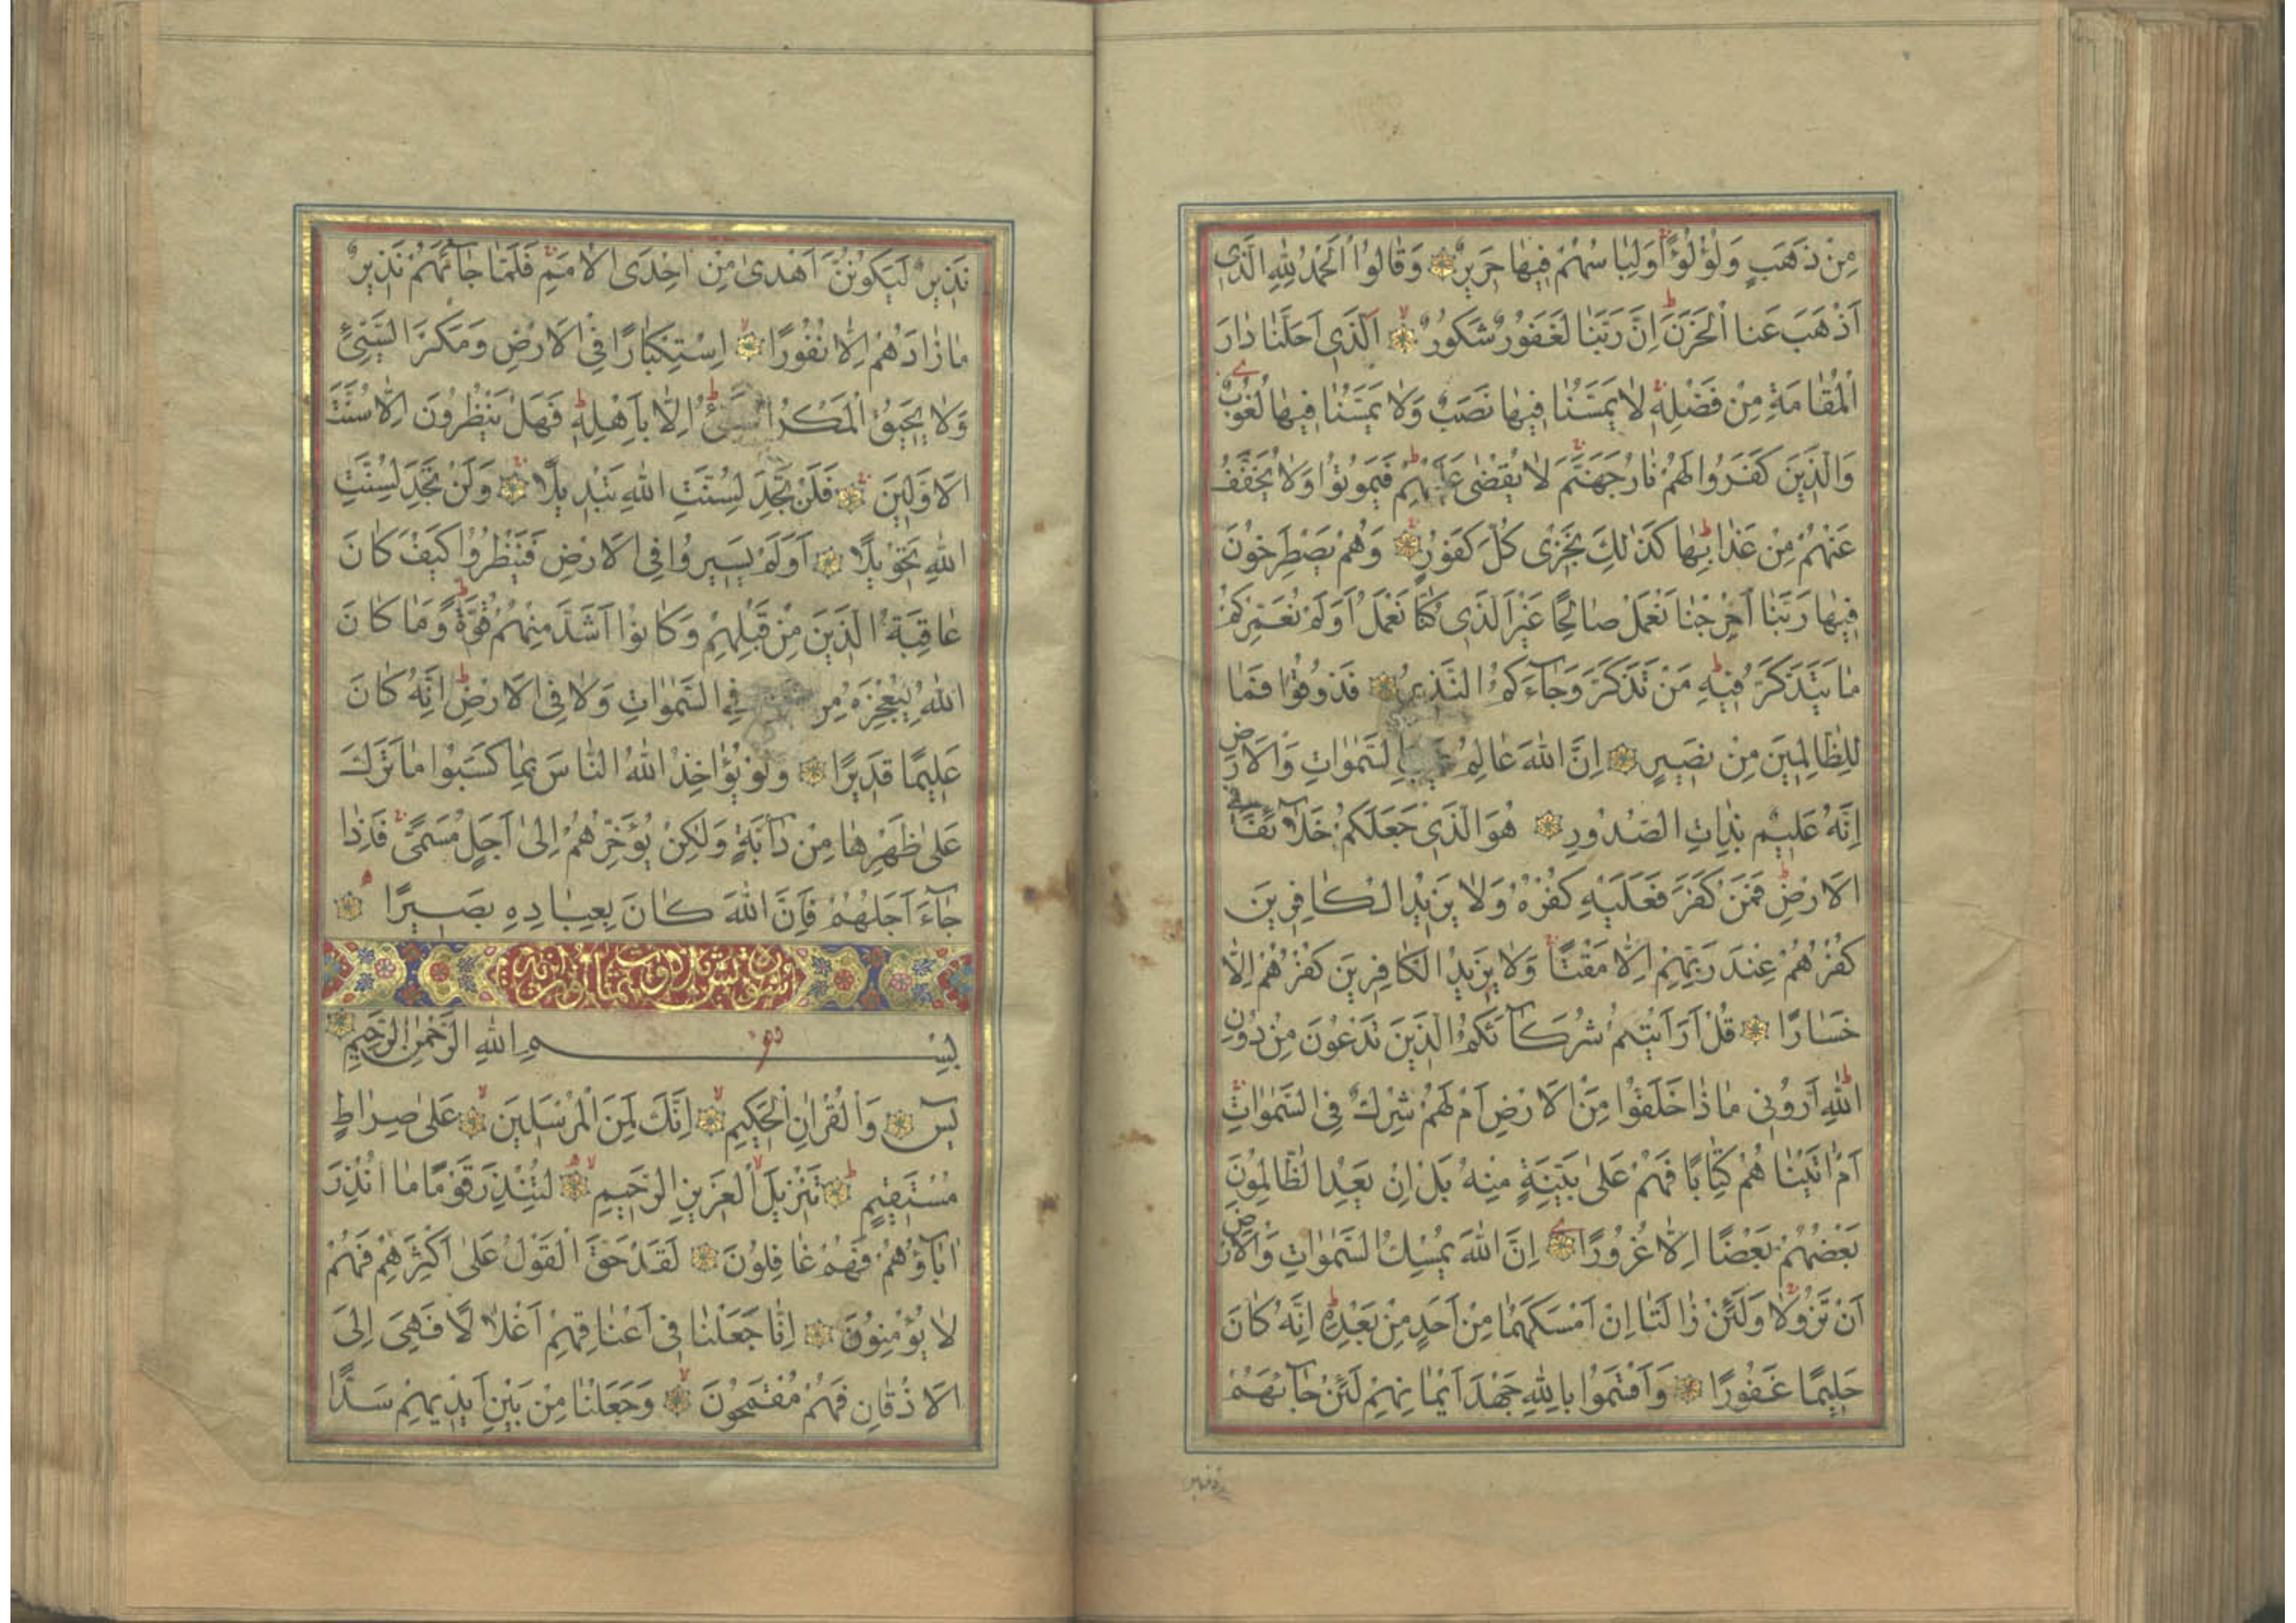 مِنْ ذَهَبٍ وَلُؤْلُؤًا وَلِبَاسُهُمْ فِيهَا حَرِيرٌ وَقَالُوا الْحَمْدُ لِلّٰهِ الَّذِي
اَذْهَبَ عَنَّا الْحَزَنَ اِنَّ رَبَّنَا لَغَفُورٌ شَكُورٌ اَلَّذِي اَحَلَّنَا دَارَ
الْمُقَامَةِ مِنْ فَضْلِهِ لَا يَمَسُّنَا فِيهَا نَصَبٌ وَلَا يَمَسُّنَا فِيهَا لُغُوبٌ
وَالَّذِينَ كَفَرُوا لَهُمْ نَارُ جَهَنَّمَ لَا يُقْضٰى عَلَيْهِمْ فَيَمُوتُوا وَلَا يُخَفَّفُ
عَنْهُمْ مِنْ عَذَابِهَا كَذٰلِكَ نَجْزِي كُلَّ كَفُورٍ وَهُمْ يَصْطَرِخُونَ
فِيهَا رَبَّنَا اَخْرِجْنَا نَعْمَلْ صَالِحًا غَيْرَ الَّذِي كُنَّا نَعْمَلُ اَوَلَمْ نُعَمِّرْكُمْ
مَا يَتَذَكَّرُ فِيهِ مَنْ تَذَكَّرَ وَجَاءَكُمُ النَّذِيرُ فَذُوقُوا فَمَا
لِلظَّالِمِينَ مِنْ نَصِيرٍ اِنَّ اللّٰهَ عَالِمُ السَّمٰوَاتِ وَالْاَرْضِ
اِنَّهُ عَلِيمٌ بِذَاتِ الصُّدُورِ هُوَ الَّذِي جَعَلَكُمْ خَلَائِفَ فِي
الْاَرْضِ فَمَنْ كَفَرَ فَعَلَيْهِ كُفْرُهُ وَلَا يَزِيدُ الْكَافِرِينَ
كُفْرُهُمْ عِنْدَ رَبِّهِمْ اِلَّا مَقْتًا وَلَا يَزِيدُ الْكَافِرِينَ كُفْرُهُمْ اِلَّا
خَسَارًا قُلْ اَرَاَيْتُمْ شُرَكَاءَكُمُ الَّذِينَ تَدْعُونَ مِنْ دُونِ
اللّٰهِ اَرُونِي مَاذَا خَلَقُوا مِنَ الْاَرْضِ اَمْ لَهُمْ شِرْكٌ فِي السَّمٰوَاتِ
اَمْ اٰتَيْنَاهُمْ كِتَابًا فَهُمْ عَلٰى بَيِّنَةٍ مِنْهُ بَلْ اِنْ يَعِدُ الظَّالِمُونَ
بَعْضُهُمْ بَعْضًا اِلَّا غُرُورًا اِنَّ اللّٰهَ يُمْسِكُ السَّمٰوَاتِ وَالْاَرْضَ
اَنْ تَزُولَا وَلَئِنْ زَالَتَا اِنْ اَمْسَكَهُمَا مِنْ اَحَدٍ مِنْ بَعْدِهِ اِنَّهُ كَانَ
حَلِيمًا غَفُورًا وَاَقْسَمُوا بِاللّٰهِ جَهْدَ اَيْمَانِهِمْ لَئِنْ جَاءَهُمْ
نَذِيرٌ لَيَكُونُنَّ اَهْدٰى مِنْ اِحْدَى الْاُمَمِ فَلَمَّا جَاءَهُمْ نَذِيرٌ
مَا زَادَهُمْ اِلَّا نُفُورًا اِسْتِكْبَارًا فِي الْاَرْضِ وَمَكْرَ السَّيِّئِ
وَلَا يَحِيقُ الْمَكْرُ السَّيِّئُ اِلَّا بِاَهْلِهِ فَهَلْ يَنْظُرُونَ اِلَّا سُنَّتَ
الْاَوَّلِينَ فَلَنْ تَجِدَ لِسُنَّتِ اللّٰهِ تَبْدِيلًا وَلَنْ تَجِدَ لِسُنَّتِ
اللّٰهِ تَحْوِيلًا اَوَلَمْ يَسِيرُوا فِي الْاَرْضِ فَيَنْظُرُوا كَيْفَ كَانَ
عَاقِبَةُ الَّذِينَ مِنْ قَبْلِهِمْ وَكَانُوا اَشَدَّ مِنْهُمْ قُوَّةً وَمَا كَانَ
اللّٰهُ لِيُعْجِزَهُ مِنْ فِي السَّمٰوَاتِ وَلَا فِي الْاَرْضِ اِنَّهُ كَانَ
عَلِيمًا قَدِيرًا وَلَوْ يُؤَاخِذُ اللّٰهُ النَّاسَ بِمَا كَسَبُوا مَا تَرَكَ
عَلٰى ظَهْرِهَا مِنْ دَابَّةٍ وَلٰكِنْ يُؤَخِّرُهُمْ اِلٰى اَجَلٍ مُسَمًّى فَاِذَا
جَاءَ اَجَلُهُمْ فَاِنَّ اللّٰهَ كَانَ بِعِبَادِهِ بَصِيرًا
بِسْمِ اللّٰهِ الرَّحْمٰنِ الرَّحِيمِ
يٰسٓ وَالْقُرْاٰنِ الْحَكِيمِ اِنَّكَ لَمِنَ الْمُرْسَلِينَ عَلٰى صِرَاطٍ
مُسْتَقِيمٍ تَنْزِيلَ الْعَزِيزِ الرَّحِيمِ لِتُنْذِرَ قَوْمًا مَا اُنْذِرَ
اٰبَاؤُهُمْ فَهُمْ غَافِلُونَ لَقَدْ حَقَّ الْقَوْلُ عَلٰى اَكْثَرِهِمْ فَهُمْ
لَا يُؤْمِنُونَ اِنَّا جَعَلْنَا فِي اَعْنَاقِهِمْ اَغْلَالًا فَهِيَ اِلَى
الْاَذْقَانِ فَهُمْ مُقْمَحُونَ وَجَعَلْنَا مِنْ بَيْنِ اَيْدِيهِمْ سَدًّا